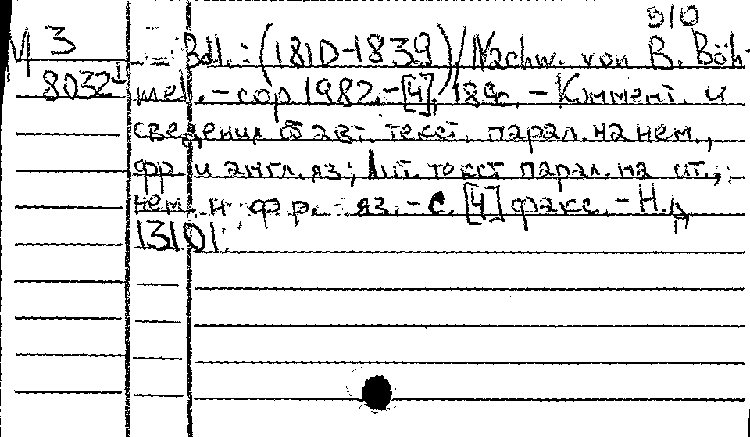 310
М 3
8032
Bdl.: (1810-1839) / Nachw. von B. Böh-
mel. - cop 1982. - [4], 189 с. - Коммент. и
сведения об авт. текст. парал. на нем.,
фр. и англ. яз.; Лит. текст парал. на ит.,
нем. и фр. яз. - с. [4] факс. - Н.д.
13101.